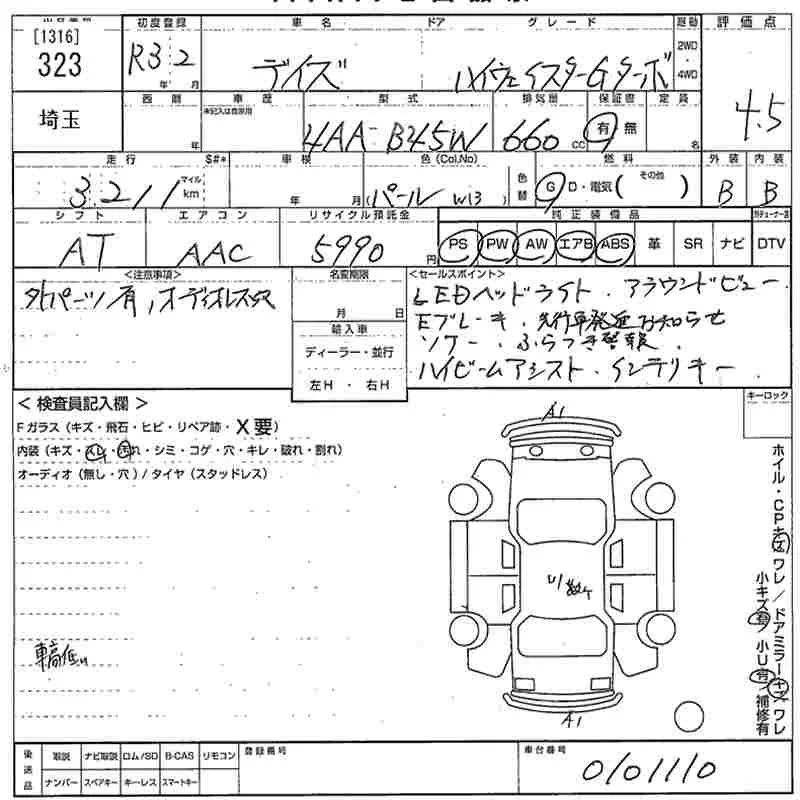 [1316]
323
初度登録
R3 2
年 月
車名 ドア グレード
デイズ
ハイウェイスターGターボ
駆動
2WD
4WD
評価点
4.5
埼玉
西暦
年
車歴
未記入は自家用
型式
4AA-B45W
排気量
660 cc
保証書
有 無
定員
名
走行
S#*
3211
マイル
km
車検
年 月
色(Col.No)
パール W13 )
色替
燃料
G D・電気( その他 )
外装
B
内装
B
シフト
AT
エアコン
AAC
リサイクル預託金
5990 円
純正装備品
PS PW AW エアB ABS 革 SR ナビ DTV
<注意事項>
外パーツ有,オーディオレス穴
名変期限
月 日
輸入車
ディーラー・並行
左H・右H
<セールスポイント>
LEDヘッドライト.アラウンドビュー.
Eブレーキ.先行車発進お知らせ
ソナー.ふらつき警報.
ハイビームアシスト.インテリキー
<検査員記入欄>
Fガラス(キズ・飛石・ヒビ・リペア跡・X要)
内装(キズ・スレ・汚れ・シミ・コゲ・穴・キレ・破れ・割れ)
オーディオ(無し・穴)/タイヤ(スタッドレス)
車高低い
キーロック
A1
U1
数ケ
A1
ホイル・CPキズワレ/ドアミラーキズワレ
小キズ有/小U有/補修有
後送品
取説 ナビ取説 ロム/SD B-CAS リモコン
ナンバー スペアキー キーレス スマートキー
登録番号
車台番号
0101110